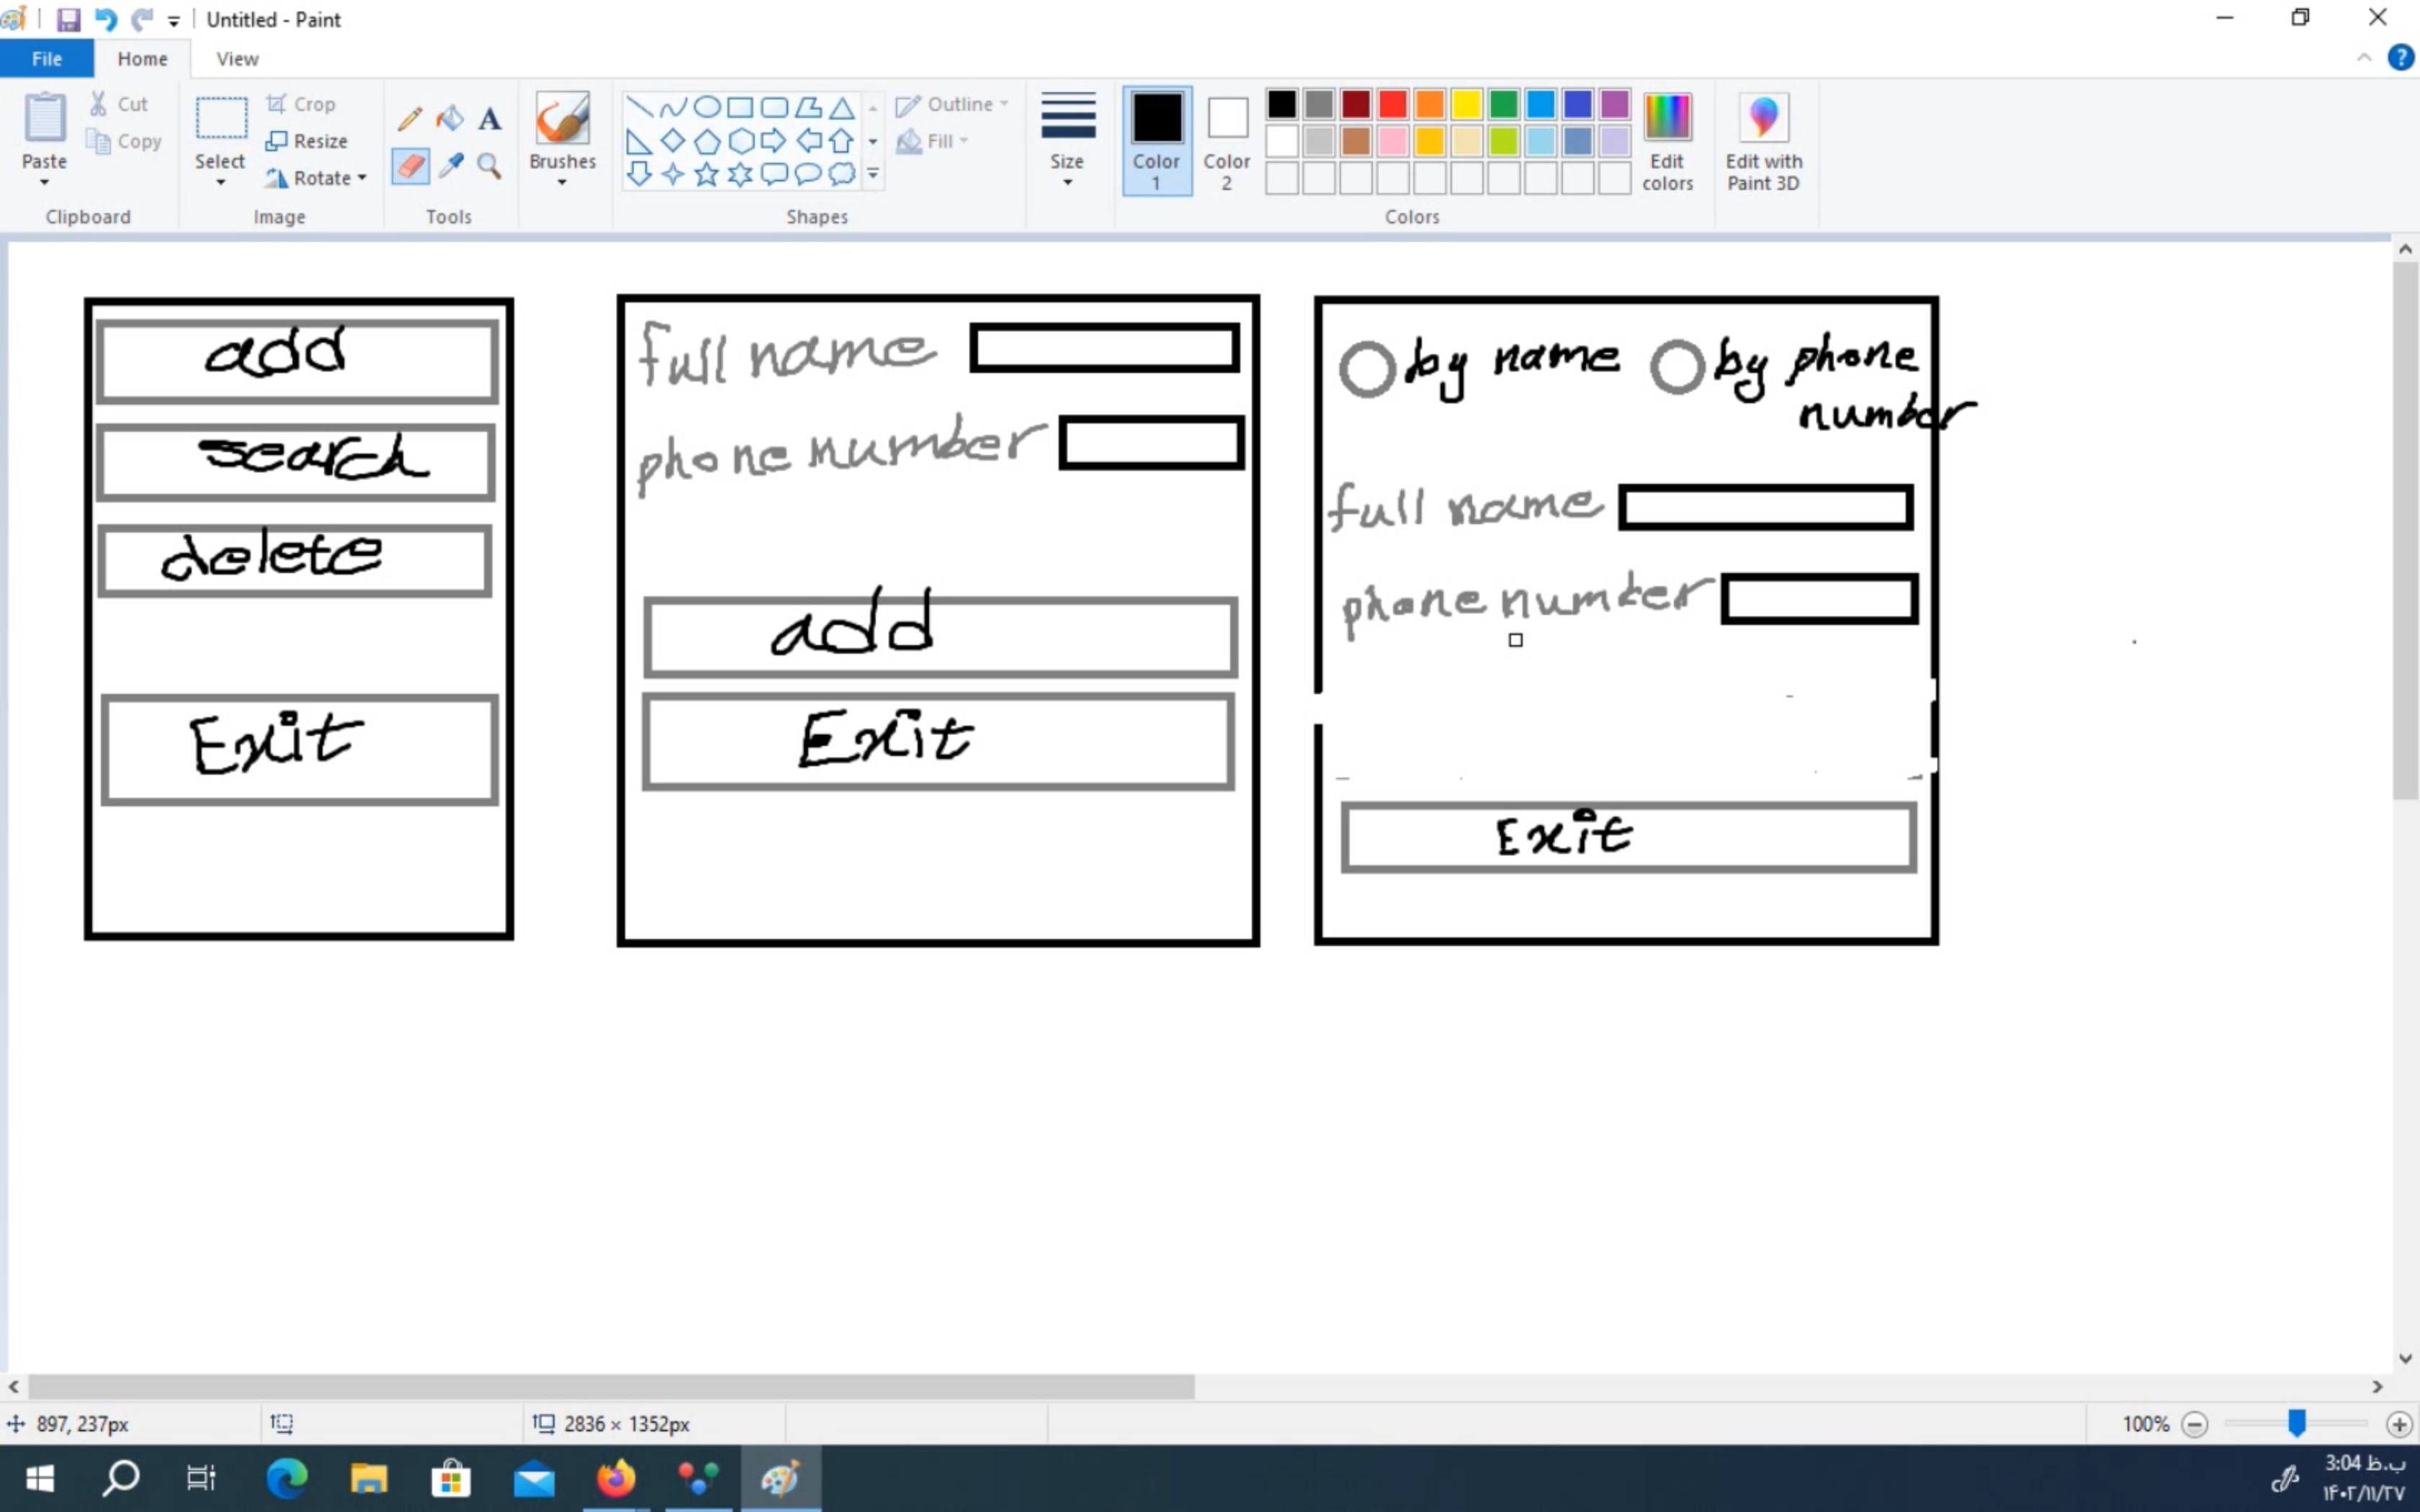 Untitled - Paint
File Home View
Paste
Cut
Copy
Clipboard
Select
Crop
Resize
Rotate
Image
A
Tools
Brushes
Shapes
Outline
Fill
Size
Color 1
Color 2
Colors
Edit colors
Edit with Paint 3D
?
add
search
delete
Exit
full name
phone number
add
Exit
by name by phone
number
full name
phone number
Exit
897, 237px
2836 × 1352px
100%
3:04 ب.ظ
۱۴۰۲/۱۱/۲۷